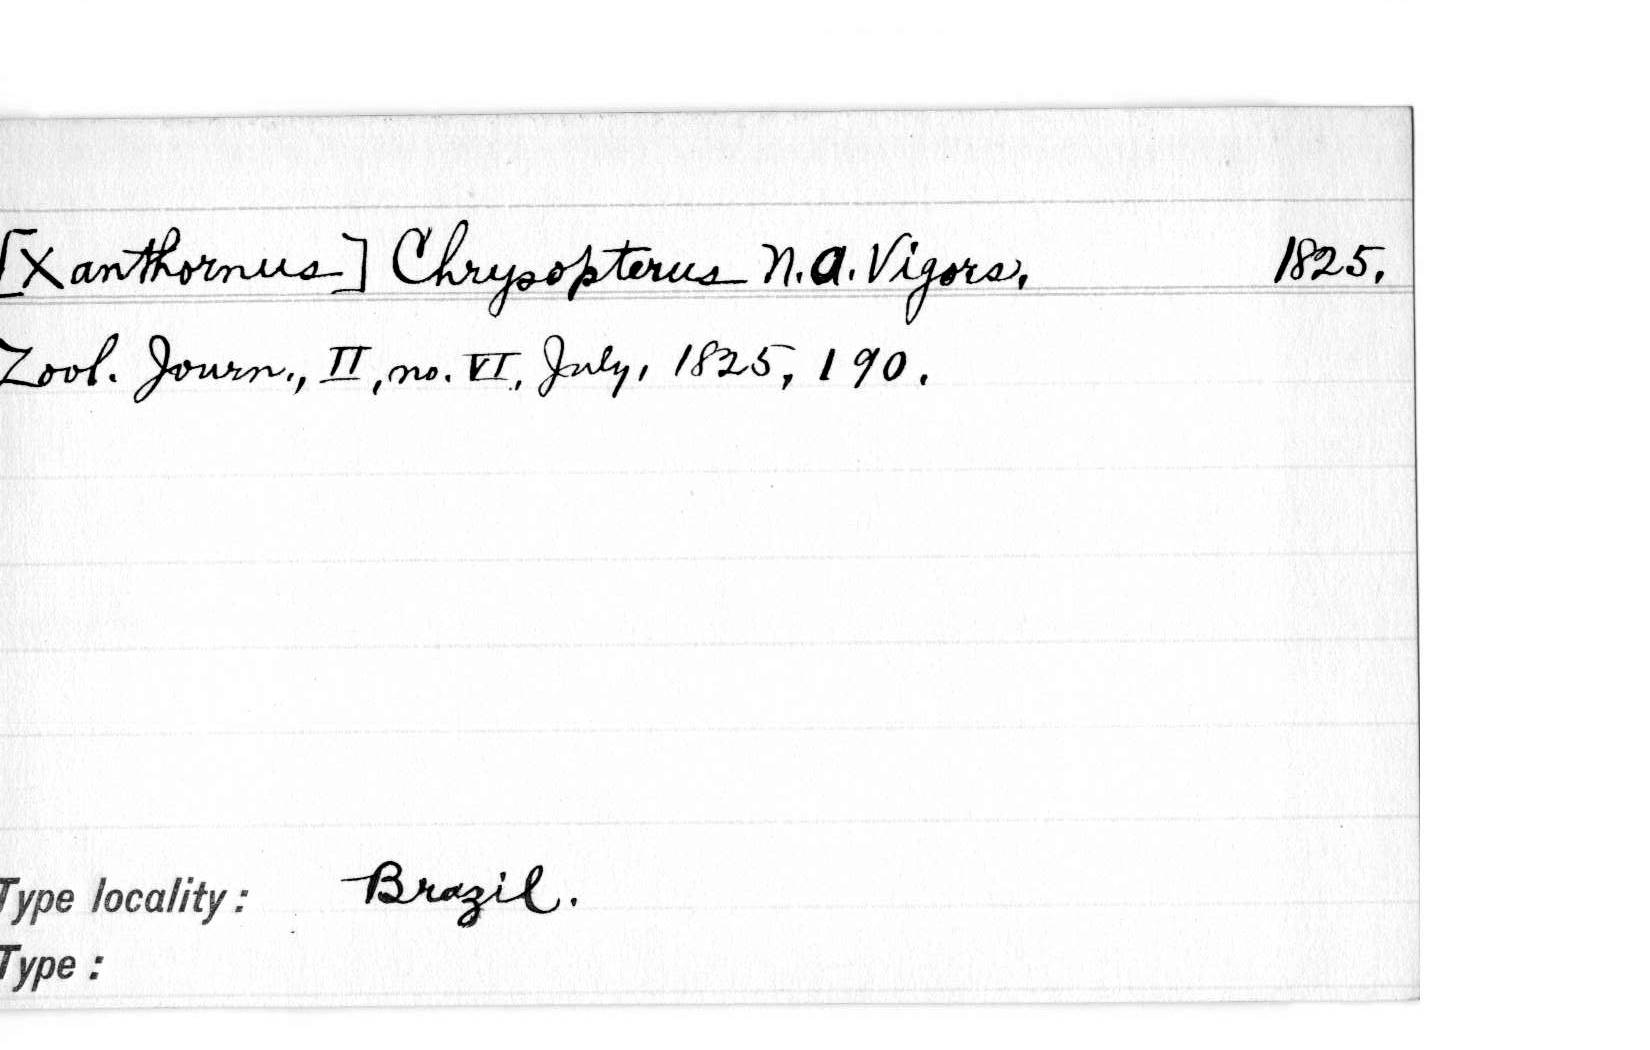 [Xanthornus] Chrysopterus N.A. Vigors, 1825.
Zool. Journ., II, no. VI, July, 1825, 190.
Type locality: Brazil.
Type: